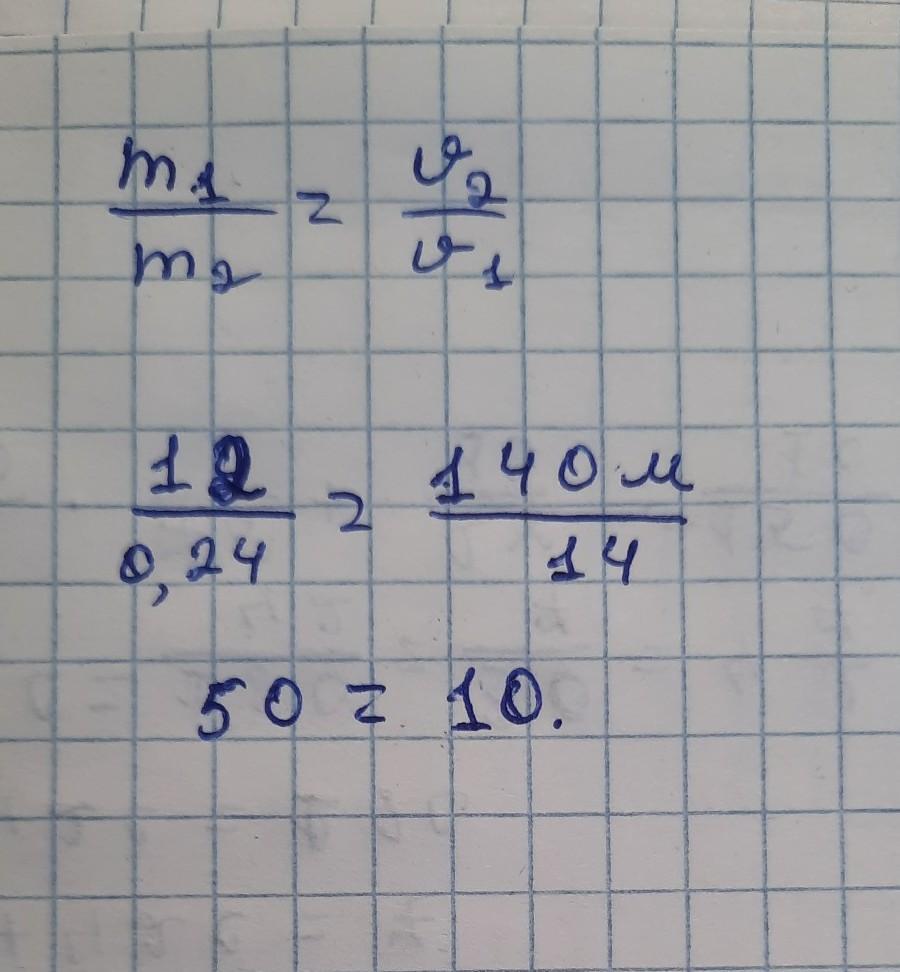 m₁/m₂ = v₂/v₁
12/0,24 = 140 м/14
50 = 10.